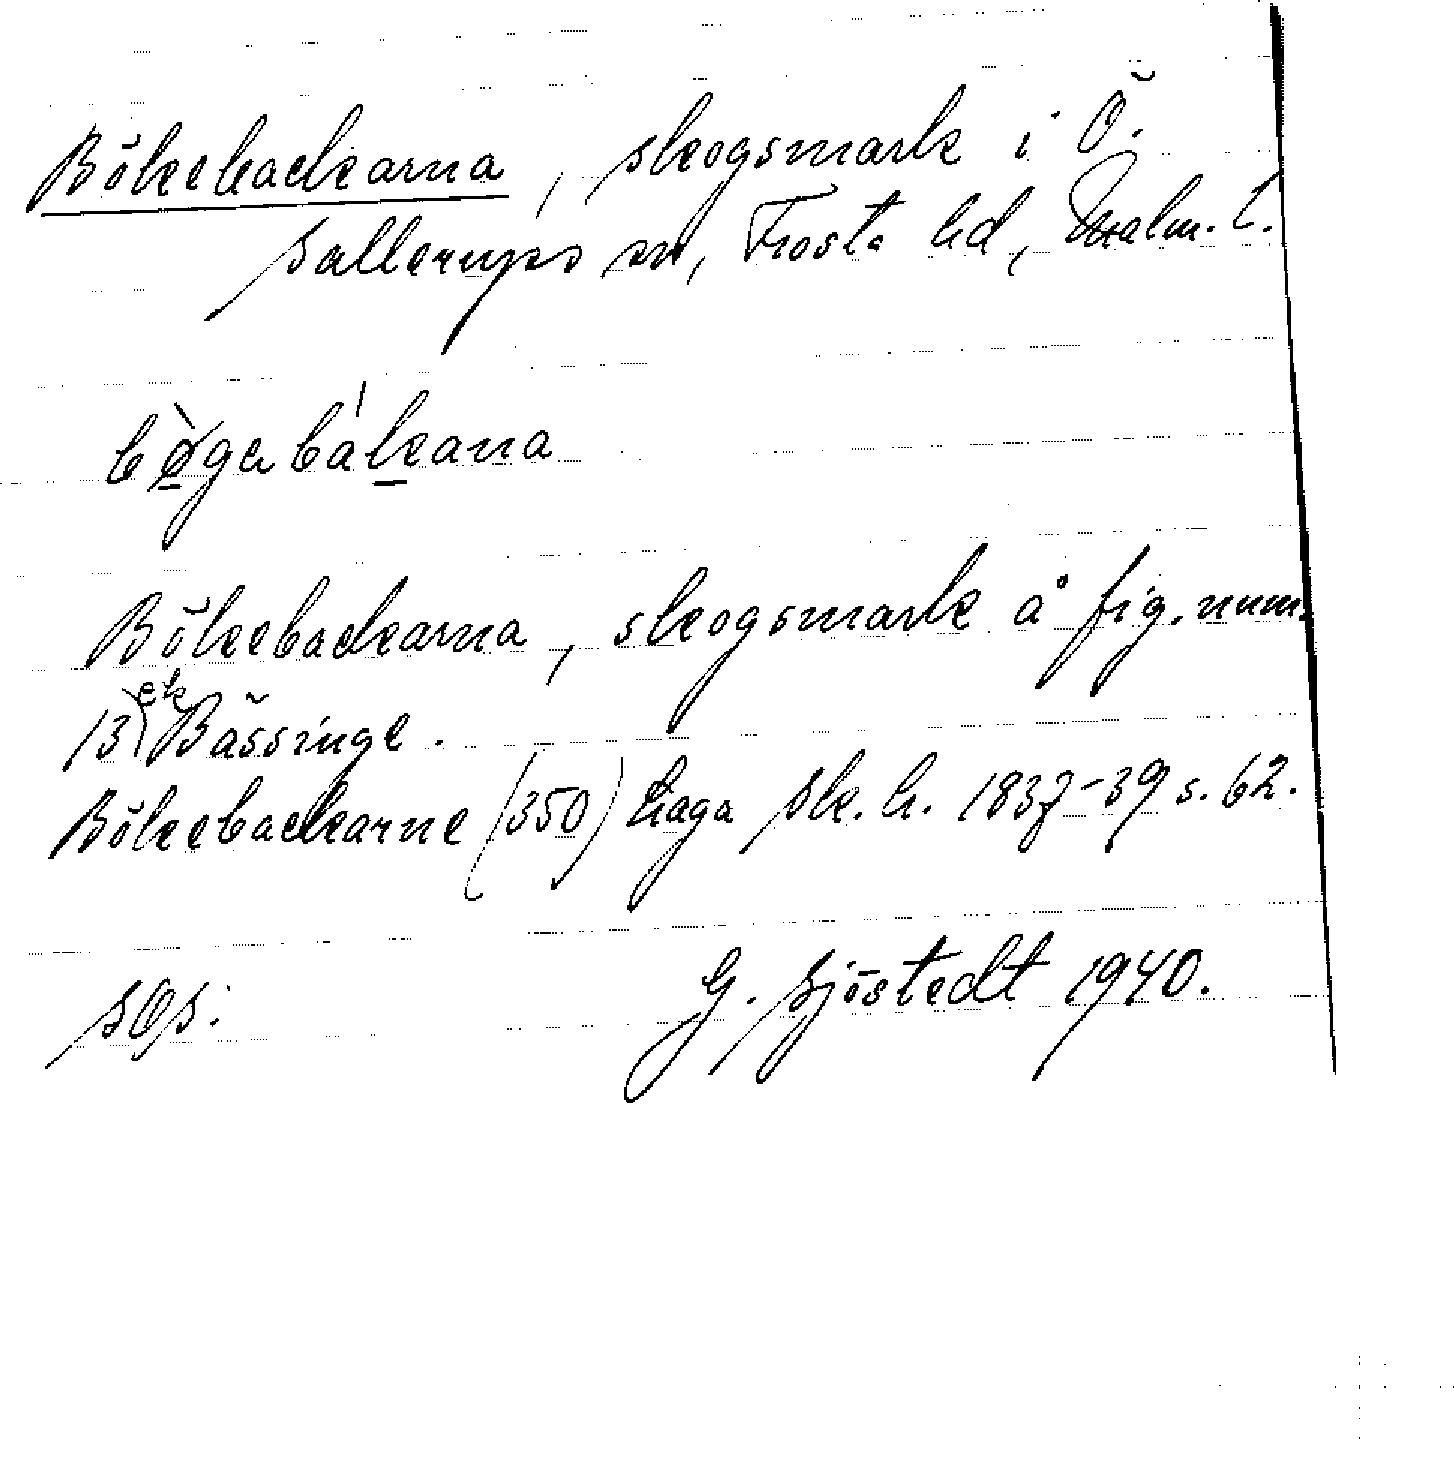 Bökebackarna, skogsmark i Ö.
Sallerups sn, Frosta hd, Malm. l.
bø̀gabákana
Bökebackarna, skogsmark å fig. num.
13) ek Bässinge.
Bökebackarne (350) Laga sk. h. 1837-39 s. 62.
sgs: G. Sjöstedt 1940.